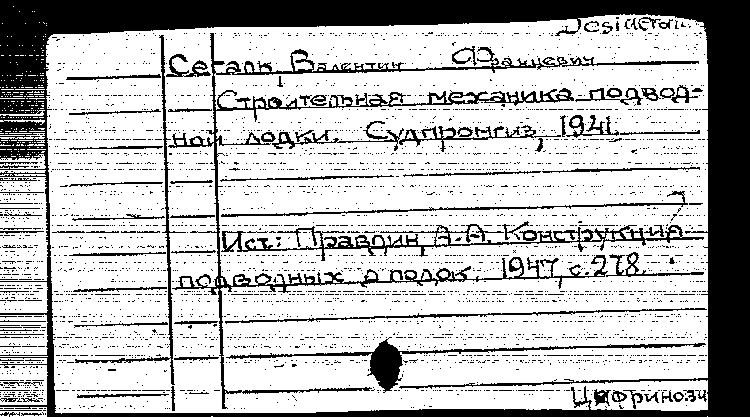 Desiderata
Сегаль, Валентин Францевич
Строительная механика подвод-
ной лодки. Судпромгиз, 1941.
Ист.: Правдин, А.А. Конструкция
подводных лодок. 1947, с. 278.